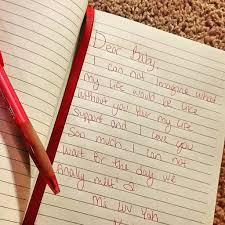 Dear Baby,
I can not imagine what
my life would be like
without you. Your my life
support and I love you
Soo much. I can not
wait for the day we
finally meet!
Luv Yah